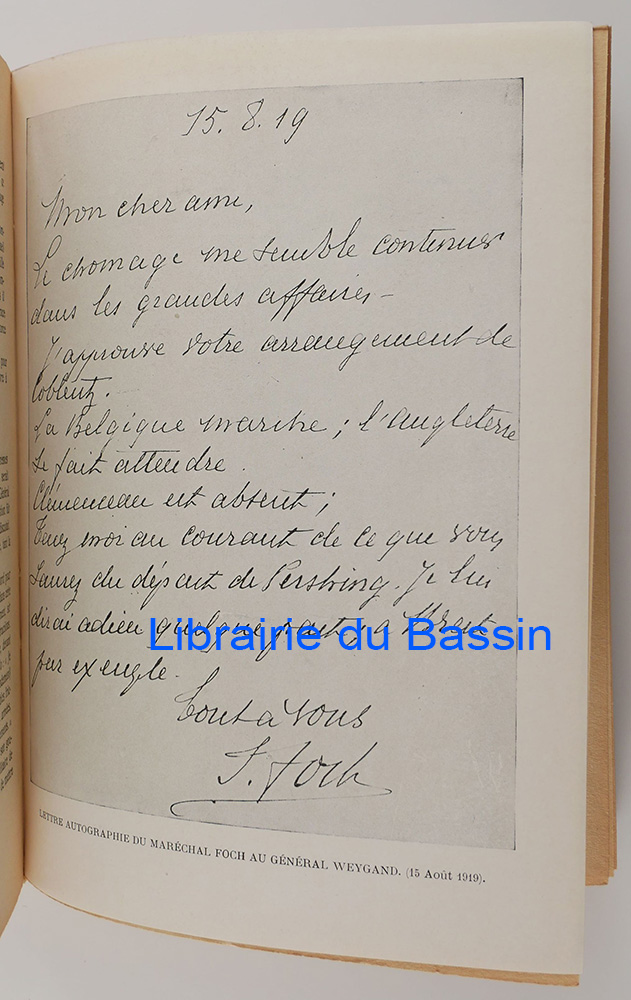 15. 8. 19
Mon cher ami,
Le chomage me semble continuer
dans les grandes affaires –
J'approuve votre arrangement de
Coblentz.
La Belgique marche ; l'Angleterre
se fait attendre.
Clémenceau est absent ;
Tenez moi au courant de ce que vous
saurez du départ de Pershing. Je lui
dirai adieu quelque part, à Brest
par exemple.
Tout à vous
F. Foch
Librairie du Bassin
LETTRE AUTOGRAPHIE DU MARÉCHAL FOCH AU GÉNÉRAL WEYGAND. (15 Août 1919).